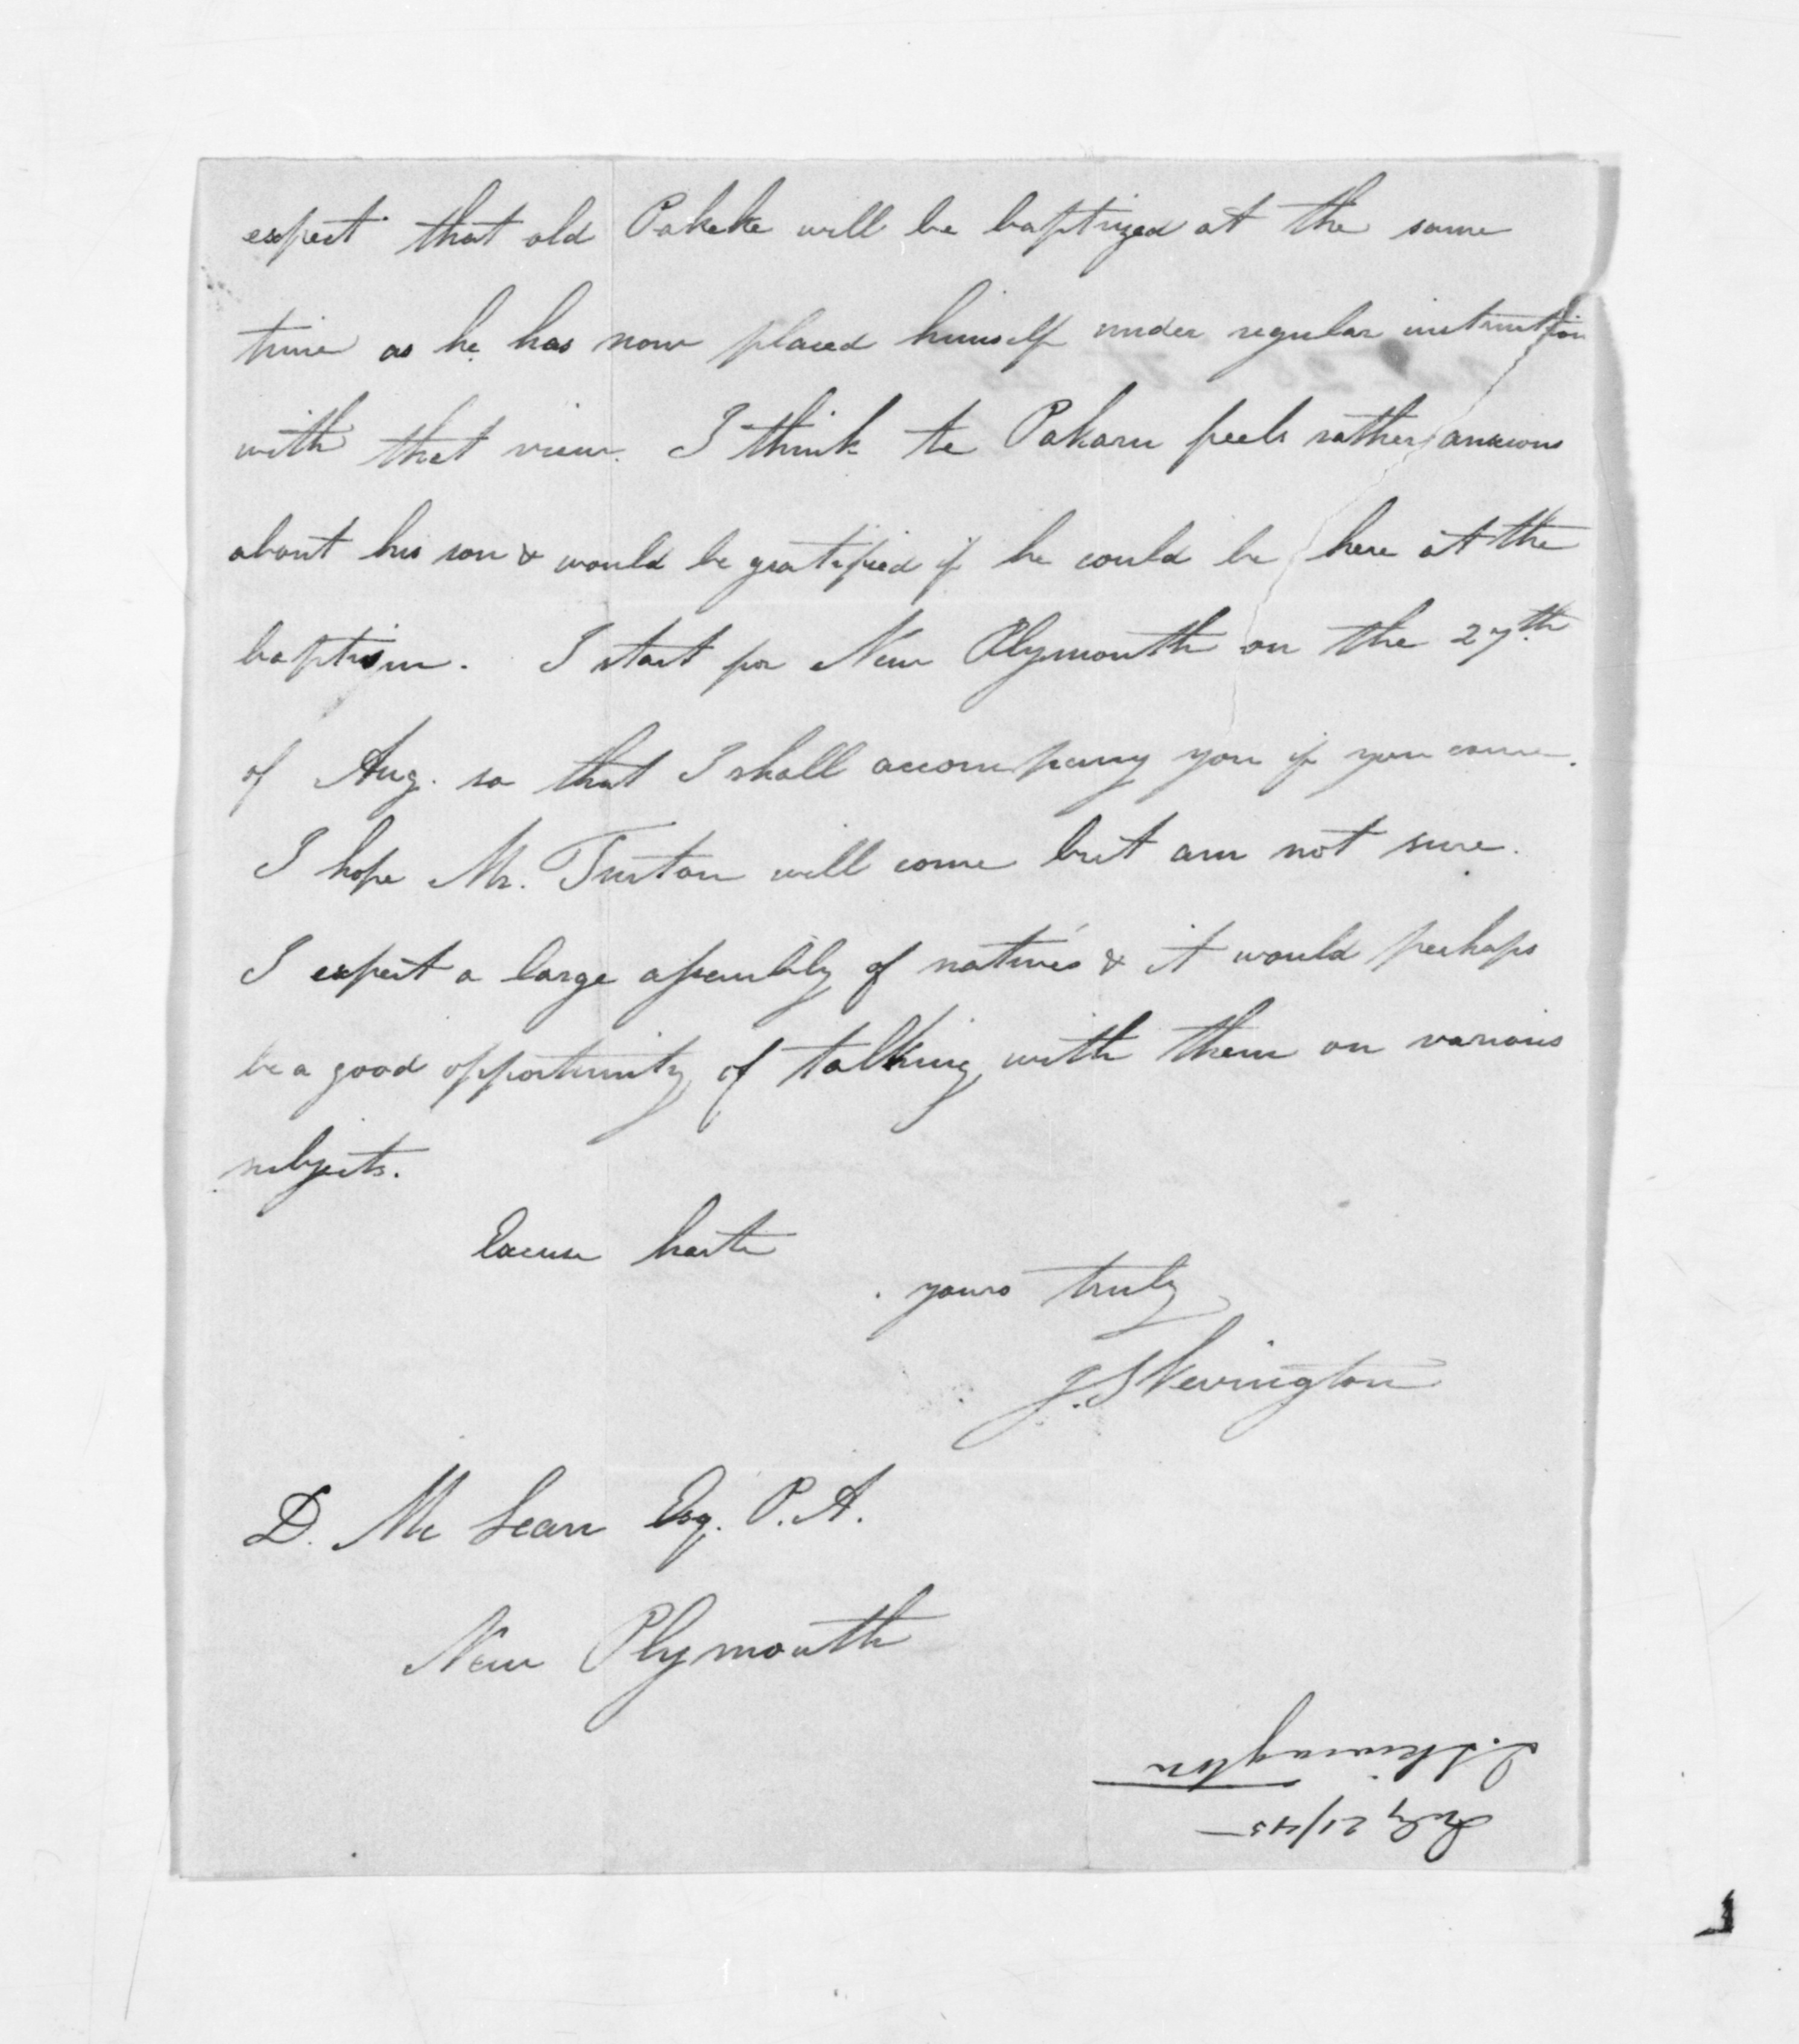 expect that old Pakeke will be baptized at the same
time as he has now placed himself under regular instruction
with that view. I think te Pakaru feels rather anxious
about his son & would be gratified if he could be here at the
baptism. I start for New Plymouth on the 27th
of Aug. so that I shall accompany you if you come.
I hope Mr. Turton will come but am not sure.
I expect a large assembly of natives & it would perhaps
be a good opportunity of talking with them on various
subjects.
Excuse haste
yours truly
J. Skevington
D. Mc Lean Esq. P. A.
New Plymouth
J. Skevington
July 21/45